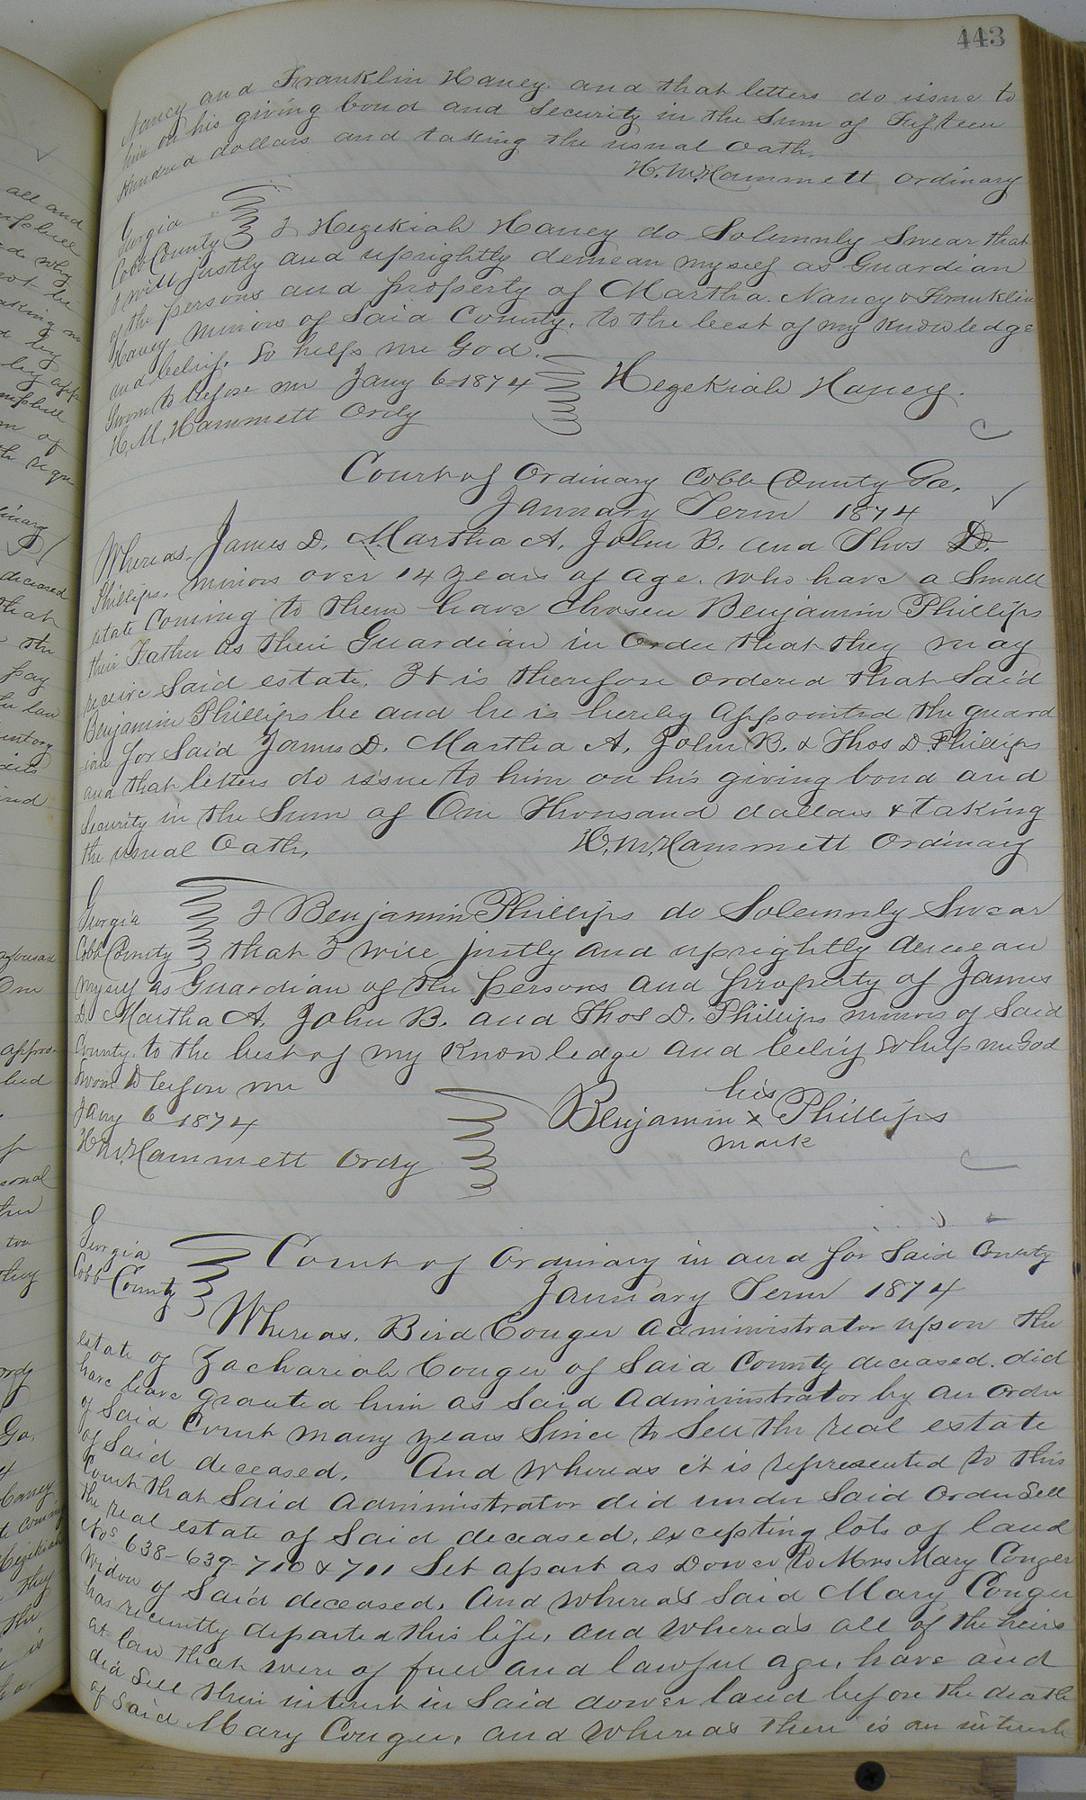 443
Nancy and Franklin Haney. and that letters do issue to
him on his giving bond and Security in the Sum of Fifteen
Hundred dollars and taking the usual Oath.
H. M. Hammett Ordinary
Georgia
Cobb County I Hezekiah Haney do Solemnly Swear that
I will justly and uprightly demean myself as Guardian
of the persons and property of Martha. Nancy & Franklin
Haney minors of Said County, to the best of my knowledge
and belief. So help me God.
Sworn to before me Jany 6 1874 Hezekiah Haney.
H. M. Hammett Ordy
Court of Ordinary Cobb County Ga.
January Term 1874
Whereas James D. Martha A. John B. and Thos D.
Phillips, minors over 14 years of age. who have a Small
estate Coming to them have chosen Benjamin Phillips
their Father as their Guardian in order that they may
receive Said estate. It is therefore ordered that Said
Benjamin Phillips be and he is hereby appointed the guard
ian for Said James D. Martha A, John B. & Thos D Phillips
and that letters do issue to him on his giving bond and
Security in the Sum of One Thousand dollars & taking
the usual Oath. H. M. Hammett Ordinary
Georgia
Cobb County I Benjamin Phillips do Solemnly Swear
that I will justly and uprightly demean
myself as Guardian of the persons and property of James
D. Martha A. John B. and Thos D. Phillips minors of Said
County, to the best of my Knowledge and belief So help me God
Sworn to before me
Jany 6 1874
H. M. Hammett Ordy
his
Benjamin x Phillips
mark
Georgia
Cobb County
Court of Ordinary in and for Said County
January Term 1874
Whereas, Bird Conger administrator upon the
estate of Zachariah Conger of Said County deceased. did
have leave granted him as Said administrator by an order
of Said Court many years Since to Sell the real estate
of Said deceased. And whereas it is represented to this
Court that Said administrator did under Said order Sell
the real estate of Said deceased, excepting lots of land
Nos 638-639-710 & 711 Set apart as Dower to Mrs Mary Conger
Widow of Said deceased. And whereas Said Mary Conger
has recently departed this life, and whereas all of the heirs
at law that were of full and lawful age, have and
did Sell their interest in Said dower land before the death
of Said Mary Conger, and whereas there is an interest